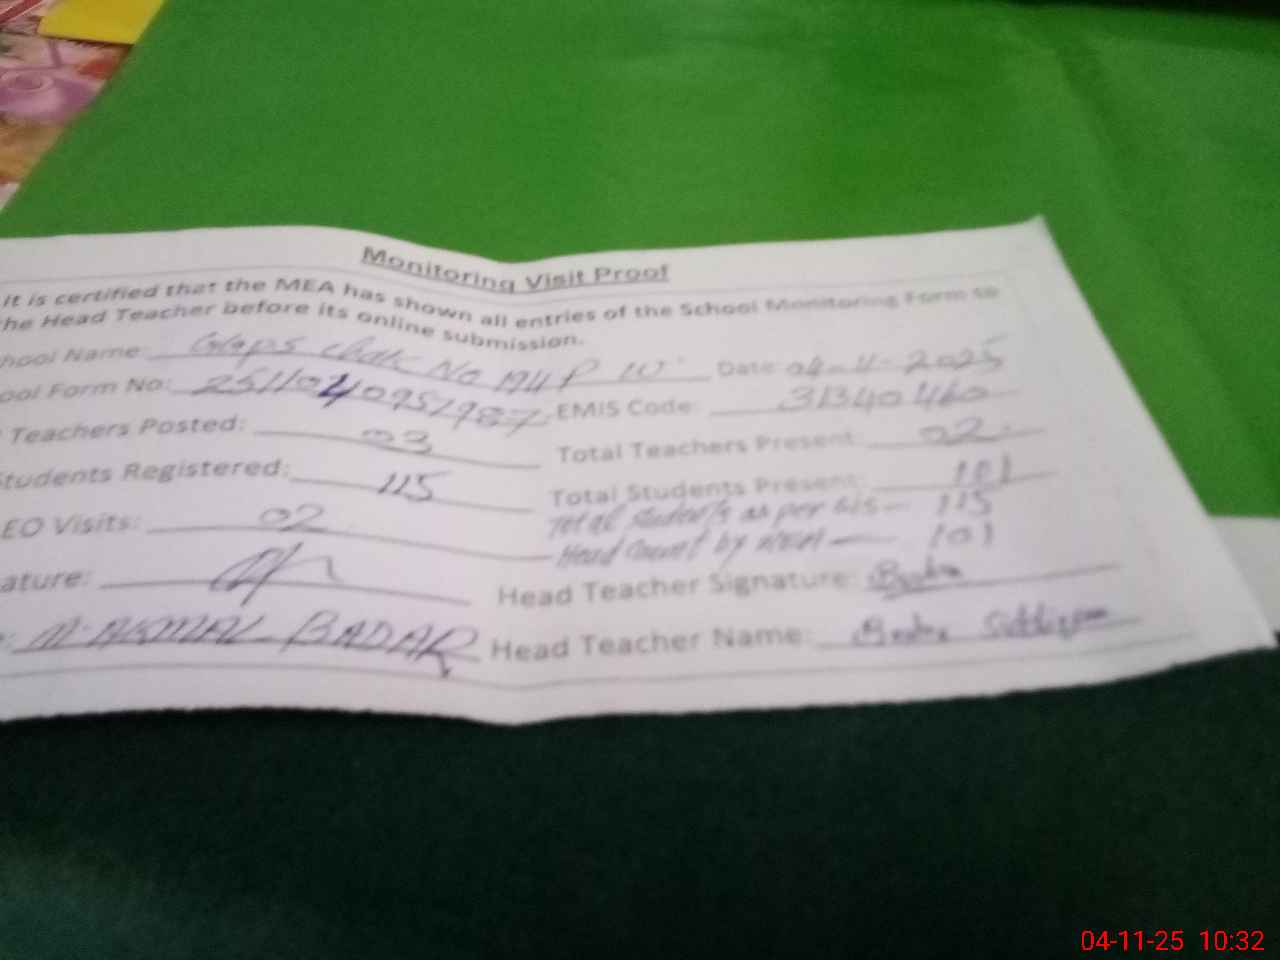 Monitoring Visit Proof
It is certified that the MEA has shown all entries of the School Monitoring Form to
he Head Teacher before its online submission.
hool Name: Chak No 194 P Date 04-11-2025
ool Form No: 2511040951987 EMIS Code: 31340460
Teachers Posted: 03 Total Teachers Present: 02
Students Registered: 115 Total Students Present: 101
Total Students as per SIS - 115
EO Visits: 02
Head Count by MEA - 101
ature: Head Teacher Signature:
BADAR Head Teacher Name:
04-11-25 10:32